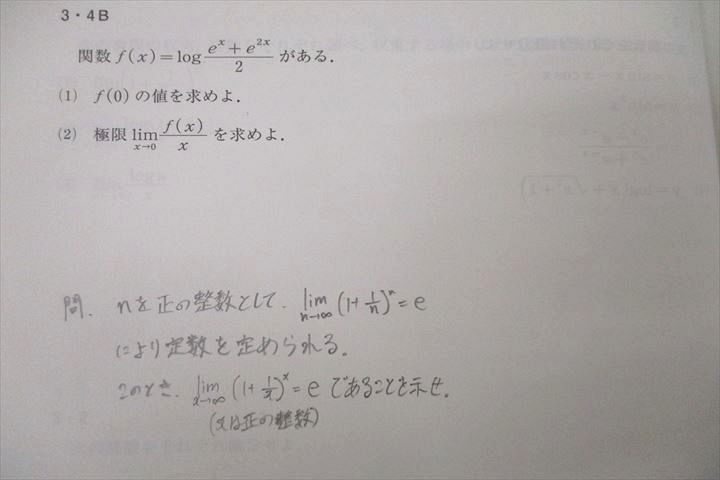 3・4B
関数 f(x)=log (e^x+e^{2x})/2 がある.
(1) f(0) の値を求めよ.
(2) 極限 lim_{x→0} f(x)/x を求めよ.
問. nを正の整数として. lim_{n→∞} (1+1/n)^n = e
により定数を定められる.
このとき. lim_{x→∞} (1+1/x)^x = e であることを示せ.
(xは正の整数)